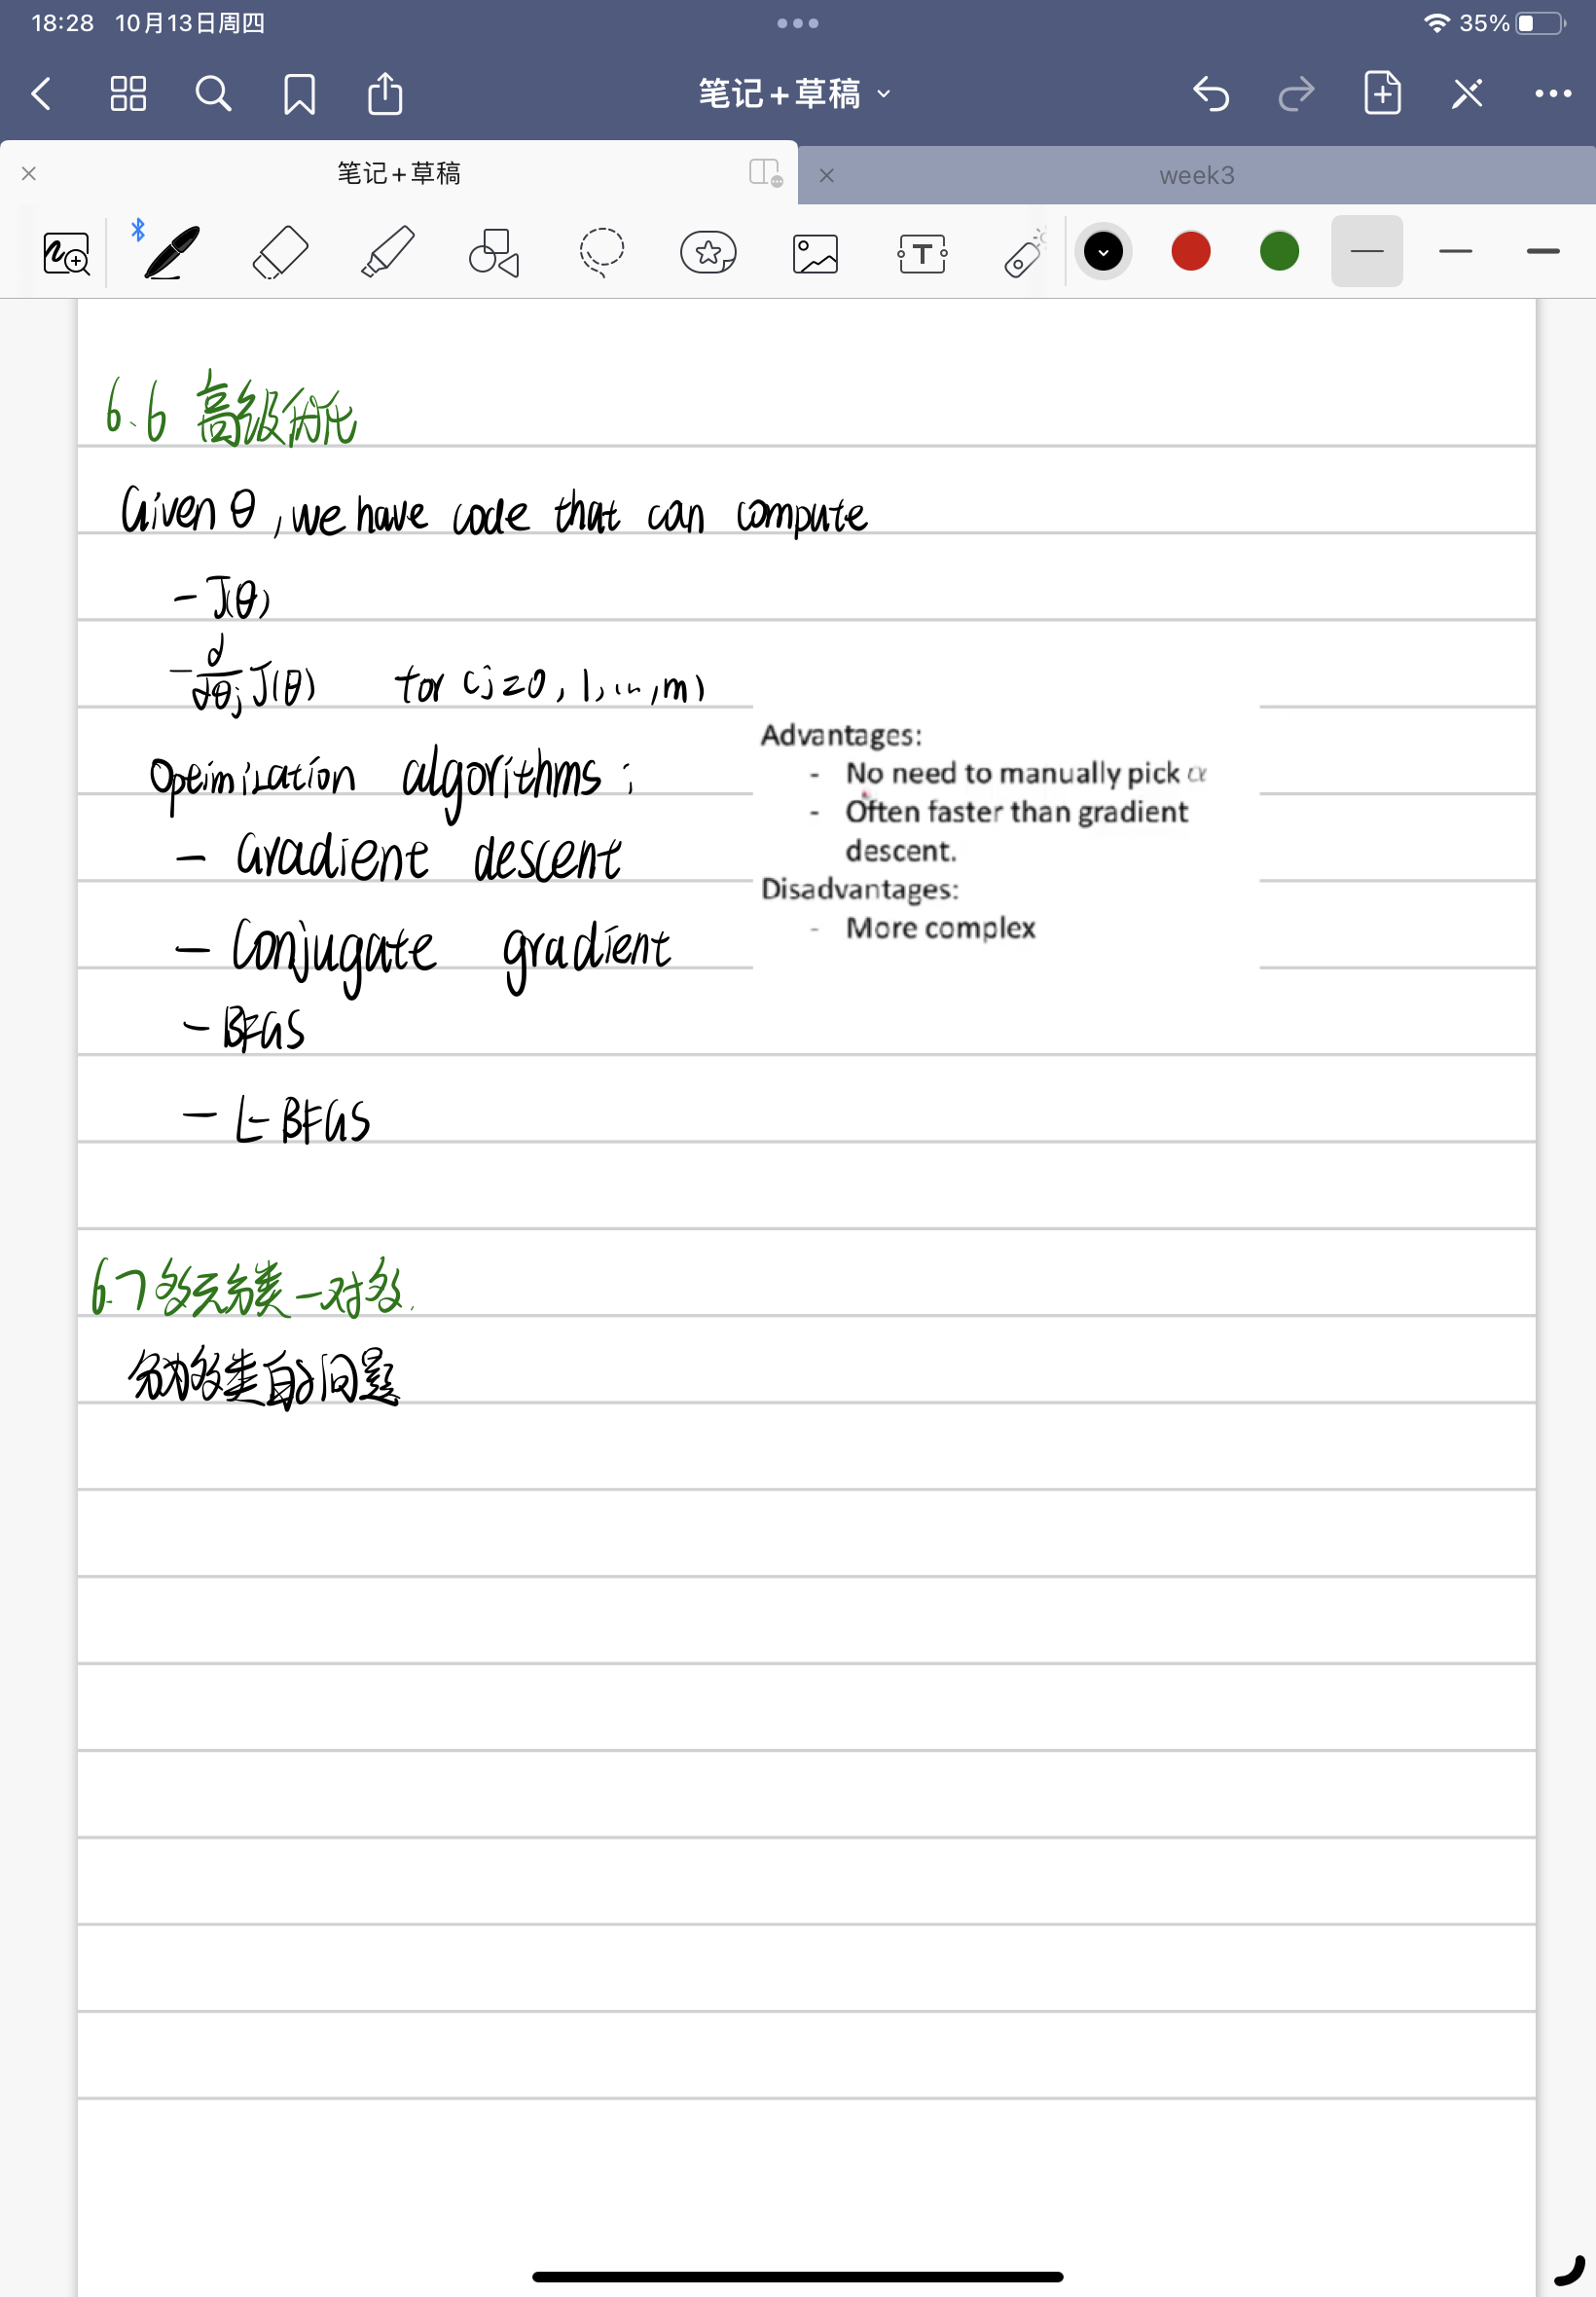 18:28 10月13日周四
35%
笔记+草稿
笔记+草稿
week3
T
6.6 高级优化
Given θ, we have code that can compute
- J(θ)
- ∂/∂θj J(θ) for (j=0, 1, ..., m)
Optimization algorithms:
- Gradient descent
- Conjugate gradient
- BFGS
- L-BFGS
Advantages:
- No need to manually pick α
- Often faster than gradient
descent.
Disadvantages:
- More complex
6.7 多元分类一对多.
分为多类的问题